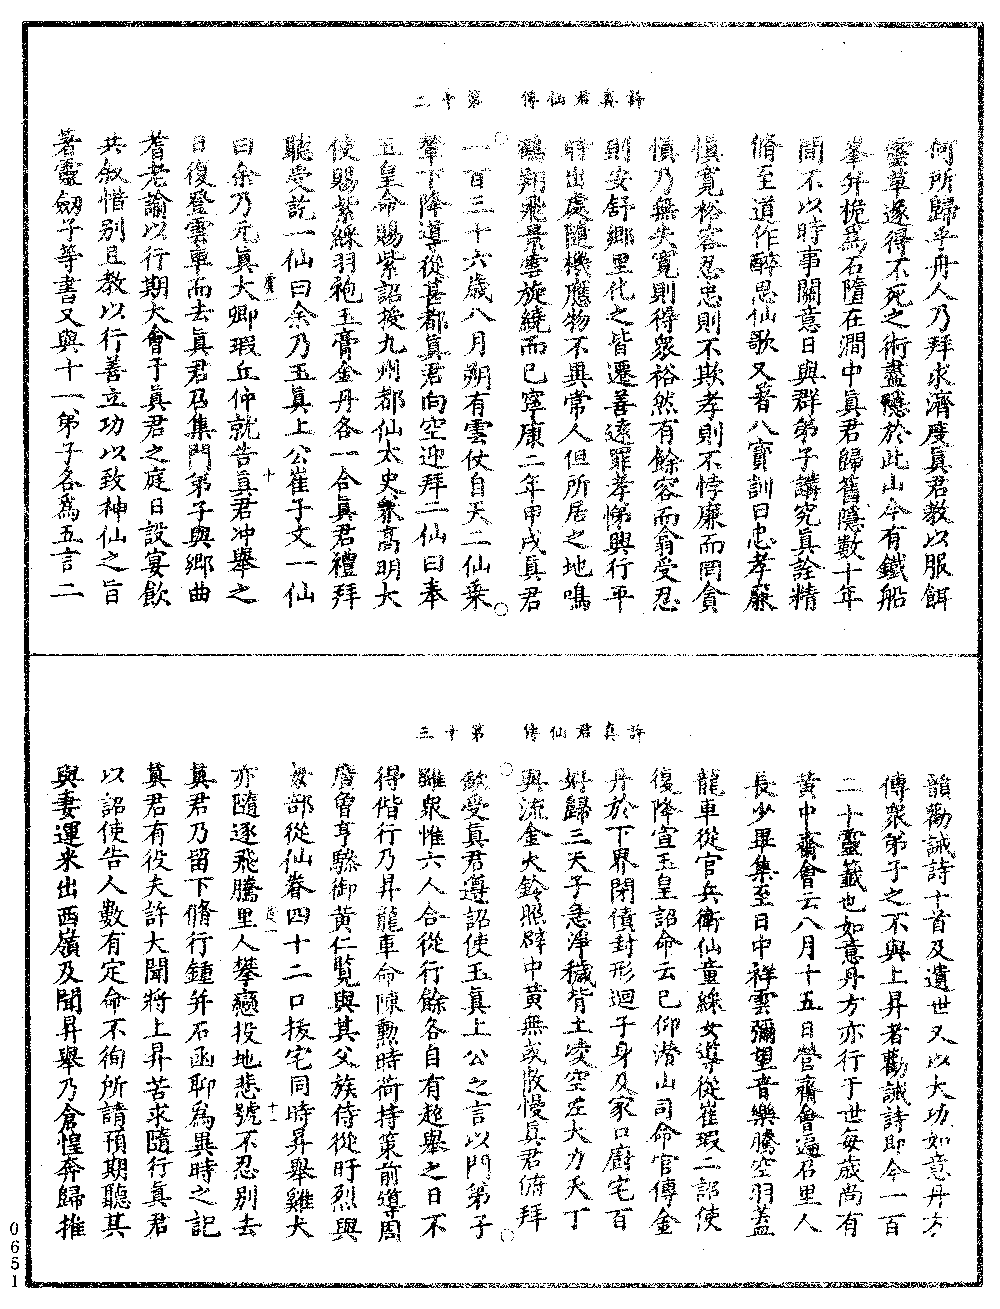 許真君仙傳　第十二
何所歸乎舟人乃拜求濟度真君教以服餌
靈草遂得不死之術盡隱於此山今有鐵船
峯幷桅爲石墮在澗中眞君歸舊隱數十年
間不以時事關意日與群弟子講究眞詮精
脩至道作醉思仙歌又著八寶訓曰忠孝廉
愼寬裕容忍忠則不欺孝則不悖廉而罔貪
愼乃無失寬則得衆裕然有餘容而翕受忍
則安舒鄉里化之皆遷善遠罪孝悌興行平
時出處隨機應物不異常人但所居之地鳴
鶴翔飛景雲旋繞而已寧康二年甲戌真君
一百三十六歲八月朔有雲仗自天二仙乗
輦下降導從甚都眞君向空迎拜二仙曰奉
玉皇命賜紫詔授九州都仙太史兼高明大
使賜紫綵羽袍玉膏金丹各一合眞君禮拜
聽受訖一仙曰余乃玉眞上公崔子文一仙
曰余乃元眞大卿瑕丘仲就告眞君冲舉之
日復登雲車而去眞君召集門弟子與鄉曲
耆老諭以行期大會于眞君之庭日設宴飮
共叙惜别且教以行善立功以致神仙之旨
著靈劒子等書又與十一弟子各爲五言二
虞一
十
許真君仙傳　第十三
韻勸誡詩十首及遺世又以大功如意丹方
傳衆弟子之不與上昇者勸誡詩即今一百
二十靈籤也如意丹方亦行于世每歲尚有
黃中齋會云八月十五日營齋會遍召里人
長少畢集至日中祥雲彌望音樂騰空羽蓋
龍車從官兵衛仙童綵女導從崔瑕二詔使
復降宣玉皇詔命云已仰潛山司命官傳金
丹於下界閉債封形迴子身及家口廚宅百
好歸三天子急淨穢背土凌空左大力天丁
與流金大鈴照辟中黃無或散慢眞君俯拜
歆受眞君遵詔使玉眞上公之言以門弟子
雖衆惟六人合從行餘各自有超舉之日不
得偕行乃昇龍車命陳勲時荷持策前導周
廣曾亨驂御黃仁覽與其父族侍從盱烈與
母部從仙眷四十二口拔宅同時昇舉雞犬
亦隨逐飛騰里人攀戀投地悲號不忍别去
眞君乃留下脩行鍾幷石函聊爲異時之記
眞君有役夫許大聞將上昇苦求隨行眞君
以詔使告人數有定命不徇所請預期聽其
與妻運米出西嶺及聞昇舉乃倉惶奔歸推
十一
0651